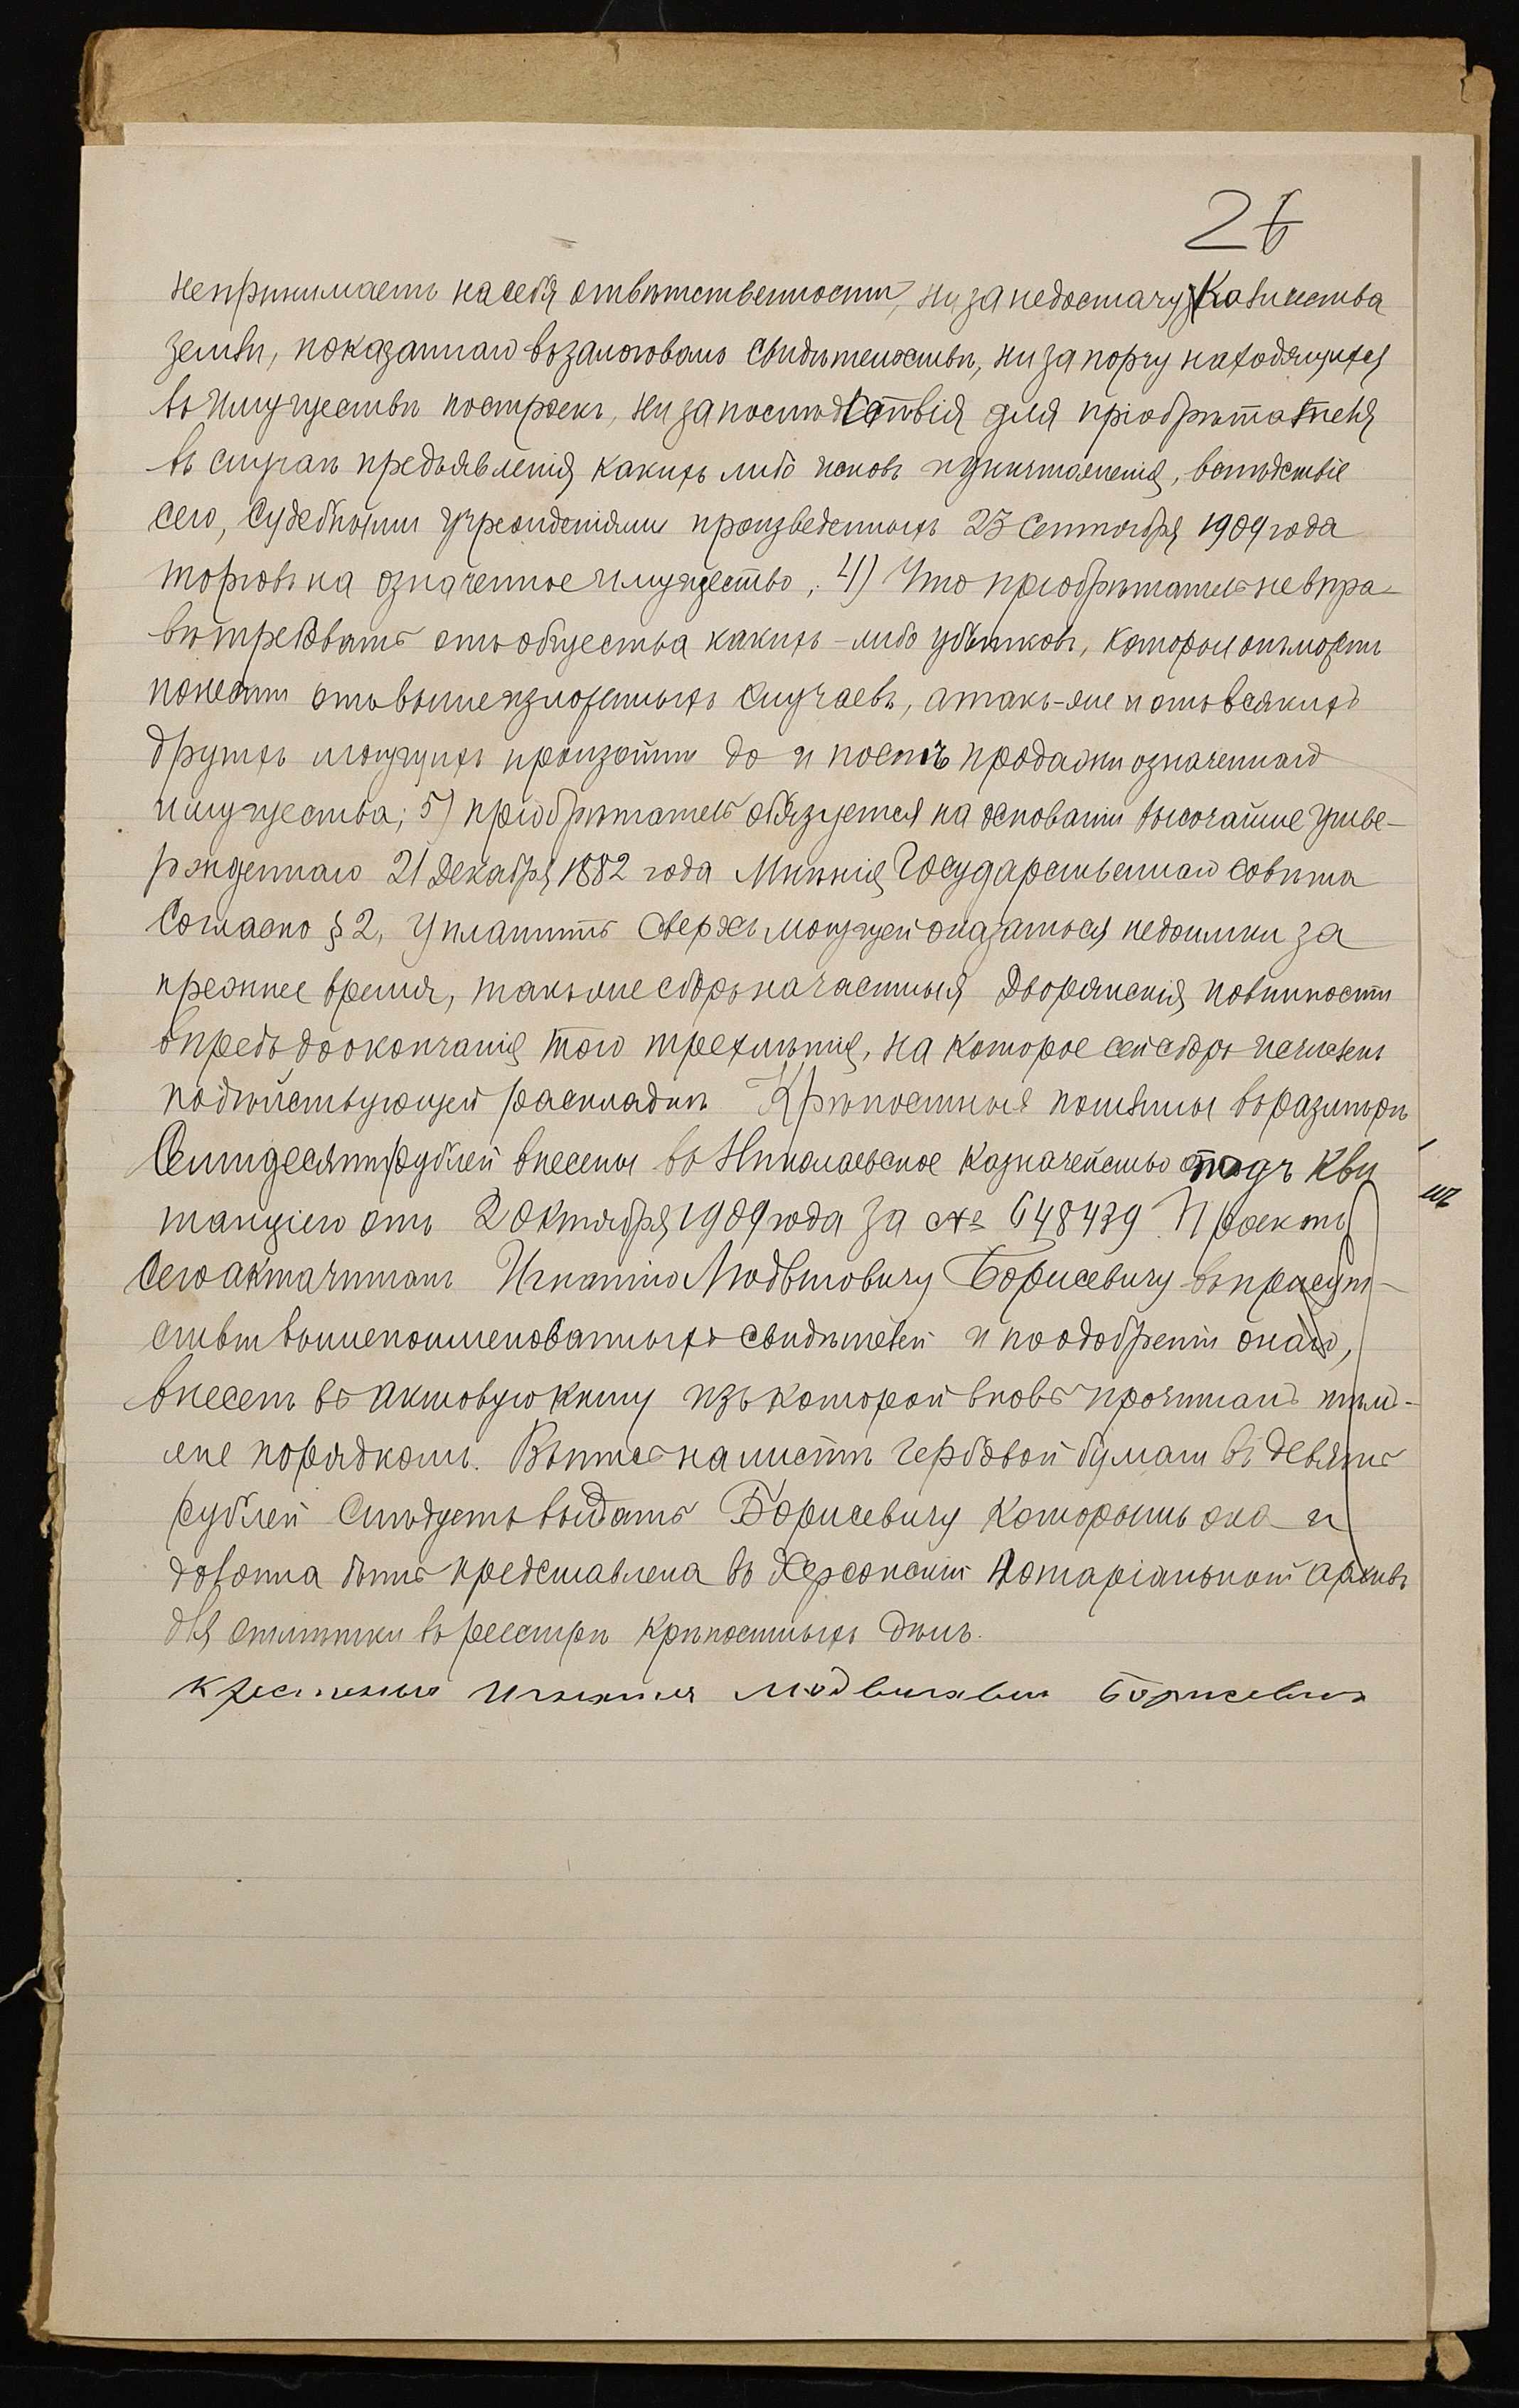 26
не принимаетъ на себя отвѣтственности, ни за недостачу количества
земли, показаннаго въ залоговомъ свидѣтельствѣ, ни за порчу находящихся
въ имуществѣ построекъ, ни за послѣдствія для пріобрѣтателя
въ случаѣ предъявленія какихъ либо исковъ и уничтоженія, вслѣдствіе
сего, судебными учрежденіями произведенныхъ 23 Сентября 1909 года
торговъ на означенное имущество; 4) Что пріобрѣтатель не впра-
вѣ требовать отъ общества какихъ-либо убытковъ, которые онъ можетъ
понести отъ вышеизложенныхъ случаевъ, а такъ-же и отъ всякихъ
другихъ могущихъ произойти до и послѣ продажи означеннаго
имущества; 5) пріобрѣтатель обязуется на основаніи высочайше утве-
ржденнаго 21 Декабря 1882 года Мнѣнія Государственнаго Совѣта
Согласно § 2, уплатить сверхъ могущей оказаться недоимки за
прежнее время, также сборъ на частныя Дворянскія повинности
впредь до окончанія того трехлѣтія, на которое сей сборъ исчисленъ
по дѣйствующей раскладкѣ Крѣпостныя пошлины въ размѣрѣ
Семидесяти рублей внесены въ Николаевское Казначейство подъ кви
танціею отъ 2 Октября 1909 года за № 648439. Проектъ
сего акта читанъ Игнатію Людвиговичу Борисевичу въ присут-
ствіи вышепоименованныхъ свидѣтелей и по одобреніи онаго,
внесенъ въ актовую книгу изъ которой вновь прочитанъ тѣмъ-
же порядкомъ. Выпись на листѣ гербовой бумаги въ девять
рублей Слѣдуетъ выдать Борисевичу которымъ она и
должна быть представлена въ Херсонскій Нотаріальный архивъ
для отмѣтки въ реестрѣ крѣпостныхъ дѣлъ.
Крестьянинъ Игнатій Людвиговичъ Борисевичъ